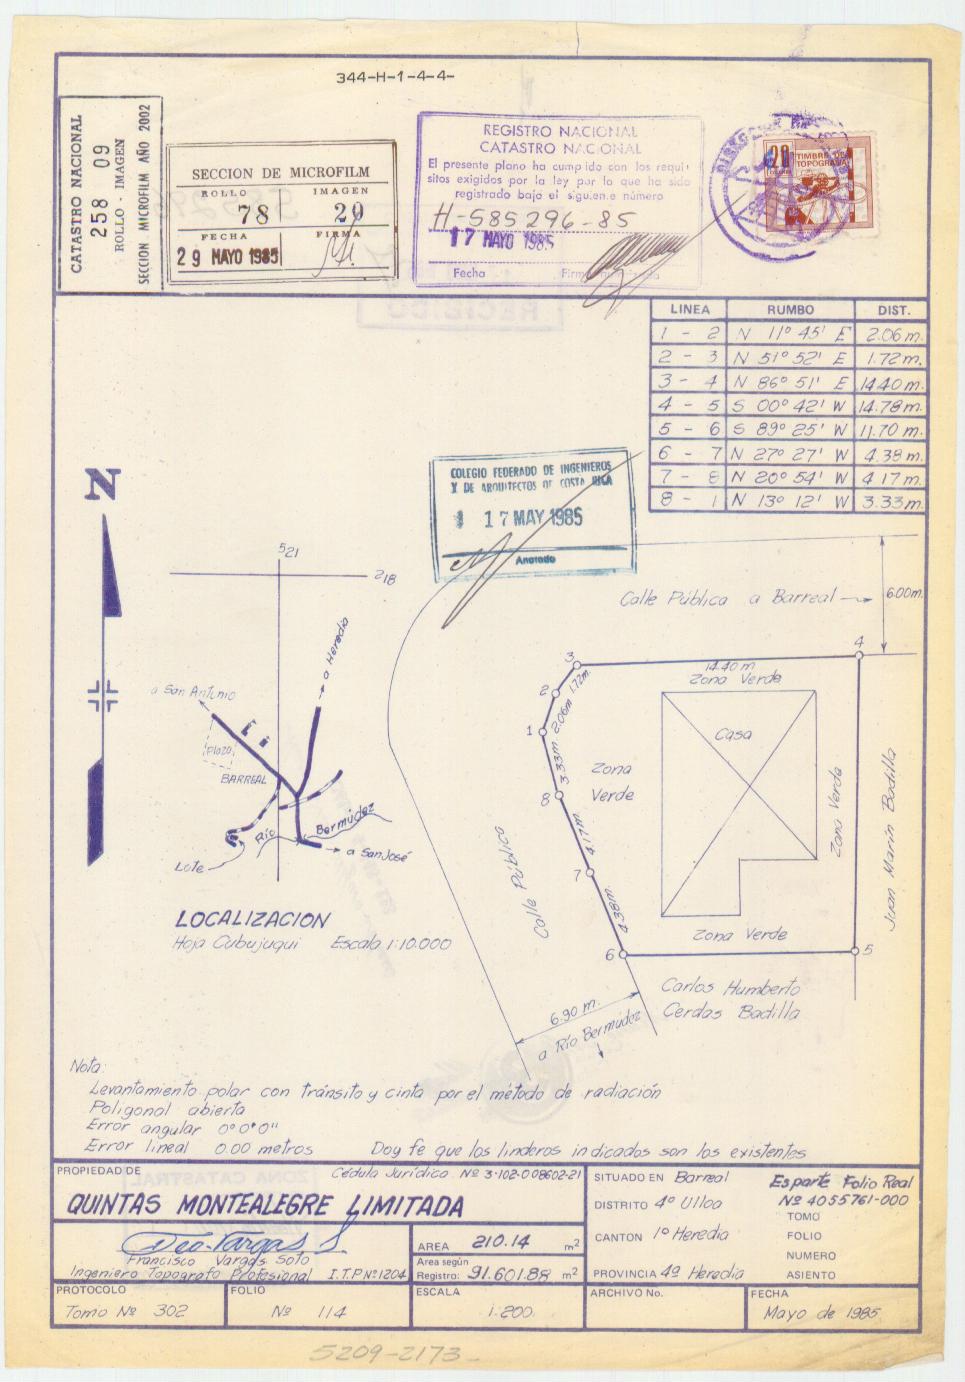 344-H-1-4-4-
CATASTRO NACIONAL
258 09
ROLLO - IMAGEN
SECCION MICROFILM AÑO 2002
SECCION DE MICROFILM
ROLLO IMAGEN
78 20
FECHA FIRMA
29 MAYO 1985
REGISTRO NACIONAL
CATASTRO NACIONAL
El presente plano ha cumplido con los requi-
sitos exigidos por la ley por lo que ha sido
registrado bajo el siguiente número
H-585296-85
17 MAYO 1985
Fecha
20
TIMBRE DE
TOPOGRAFIA
RECIBIDO
LINEA RUMBO DIST.
1 - 2 N 11° 45' E 2.06 m.
2 - 3 N 51° 52' E 1.72 m.
3 - 4 N 86° 51' E 14.40 m.
4 - 5 S 00° 42' W 14.78 m.
5 - 6 S 89° 25' W 11.70 m.
6 - 7 N 27° 27' W 4.38 m.
7 - 8 N 20° 54' W 4.17 m.
8 - 1 N 13° 12' W 3.33 m.
COLEGIO FEDERADO DE INGENIEROS
Y DE ARQUITECTOS DE COSTA RICA
17 MAY 1985
Anotado
N
521
218
Calle Pública a Barreal
6.00 m.
a Heredia
a San Antonio
Plaza
BARREAL
Río Bermúdez
a San José
Lote
LOCALIZACION
Hoja Cubujuqui Escala 1:10.000
3
14.40 m
4
Zona Verde
2
1.72 m.
2.06 m.
1
Casa
3.33 m.
Zona
Verde
8
Zona Verde
Juan Marín Badilla
4.17 m.
7
Calle Pública
4.38 m.
Zona Verde
6
5
Carlos Humberto
Cerdas Badilla
6.90 m.
a Río Bermúdez
Nota:
Levantamiento polar con tránsito y cinta por el método de radiación
Poligonal abierta
Error angular 0°0'0"
Error lineal 0.00 metros Doy fe que los linderos indicados son los existentes
ZONA CATASTRAL
PROPIEDAD DE Cédula Jurídica Nº 3-102-008602-21
QUINTAS MONTEALEGRE LIMITADA
Francisco Vargas Soto
Ingeniero Topografo Profesional I.T.P Nº 1204
AREA 210.14 m2
Area según
Registro: 91.601.88 m2
SITUADO EN Barreal
DISTRITO 4º Ulloa
CANTON 1º Heredia
PROVINCIA 4º Heredia
Es parte Folio Real
Nº 4055761-000
TOMO
FOLIO
NUMERO
ASIENTO
PROTOCOLO
Tomo Nº 302
FOLIO
Nº 114
ESCALA
1:200.
ARCHIVO No.
FECHA
Mayo de 1985
5209-2173-